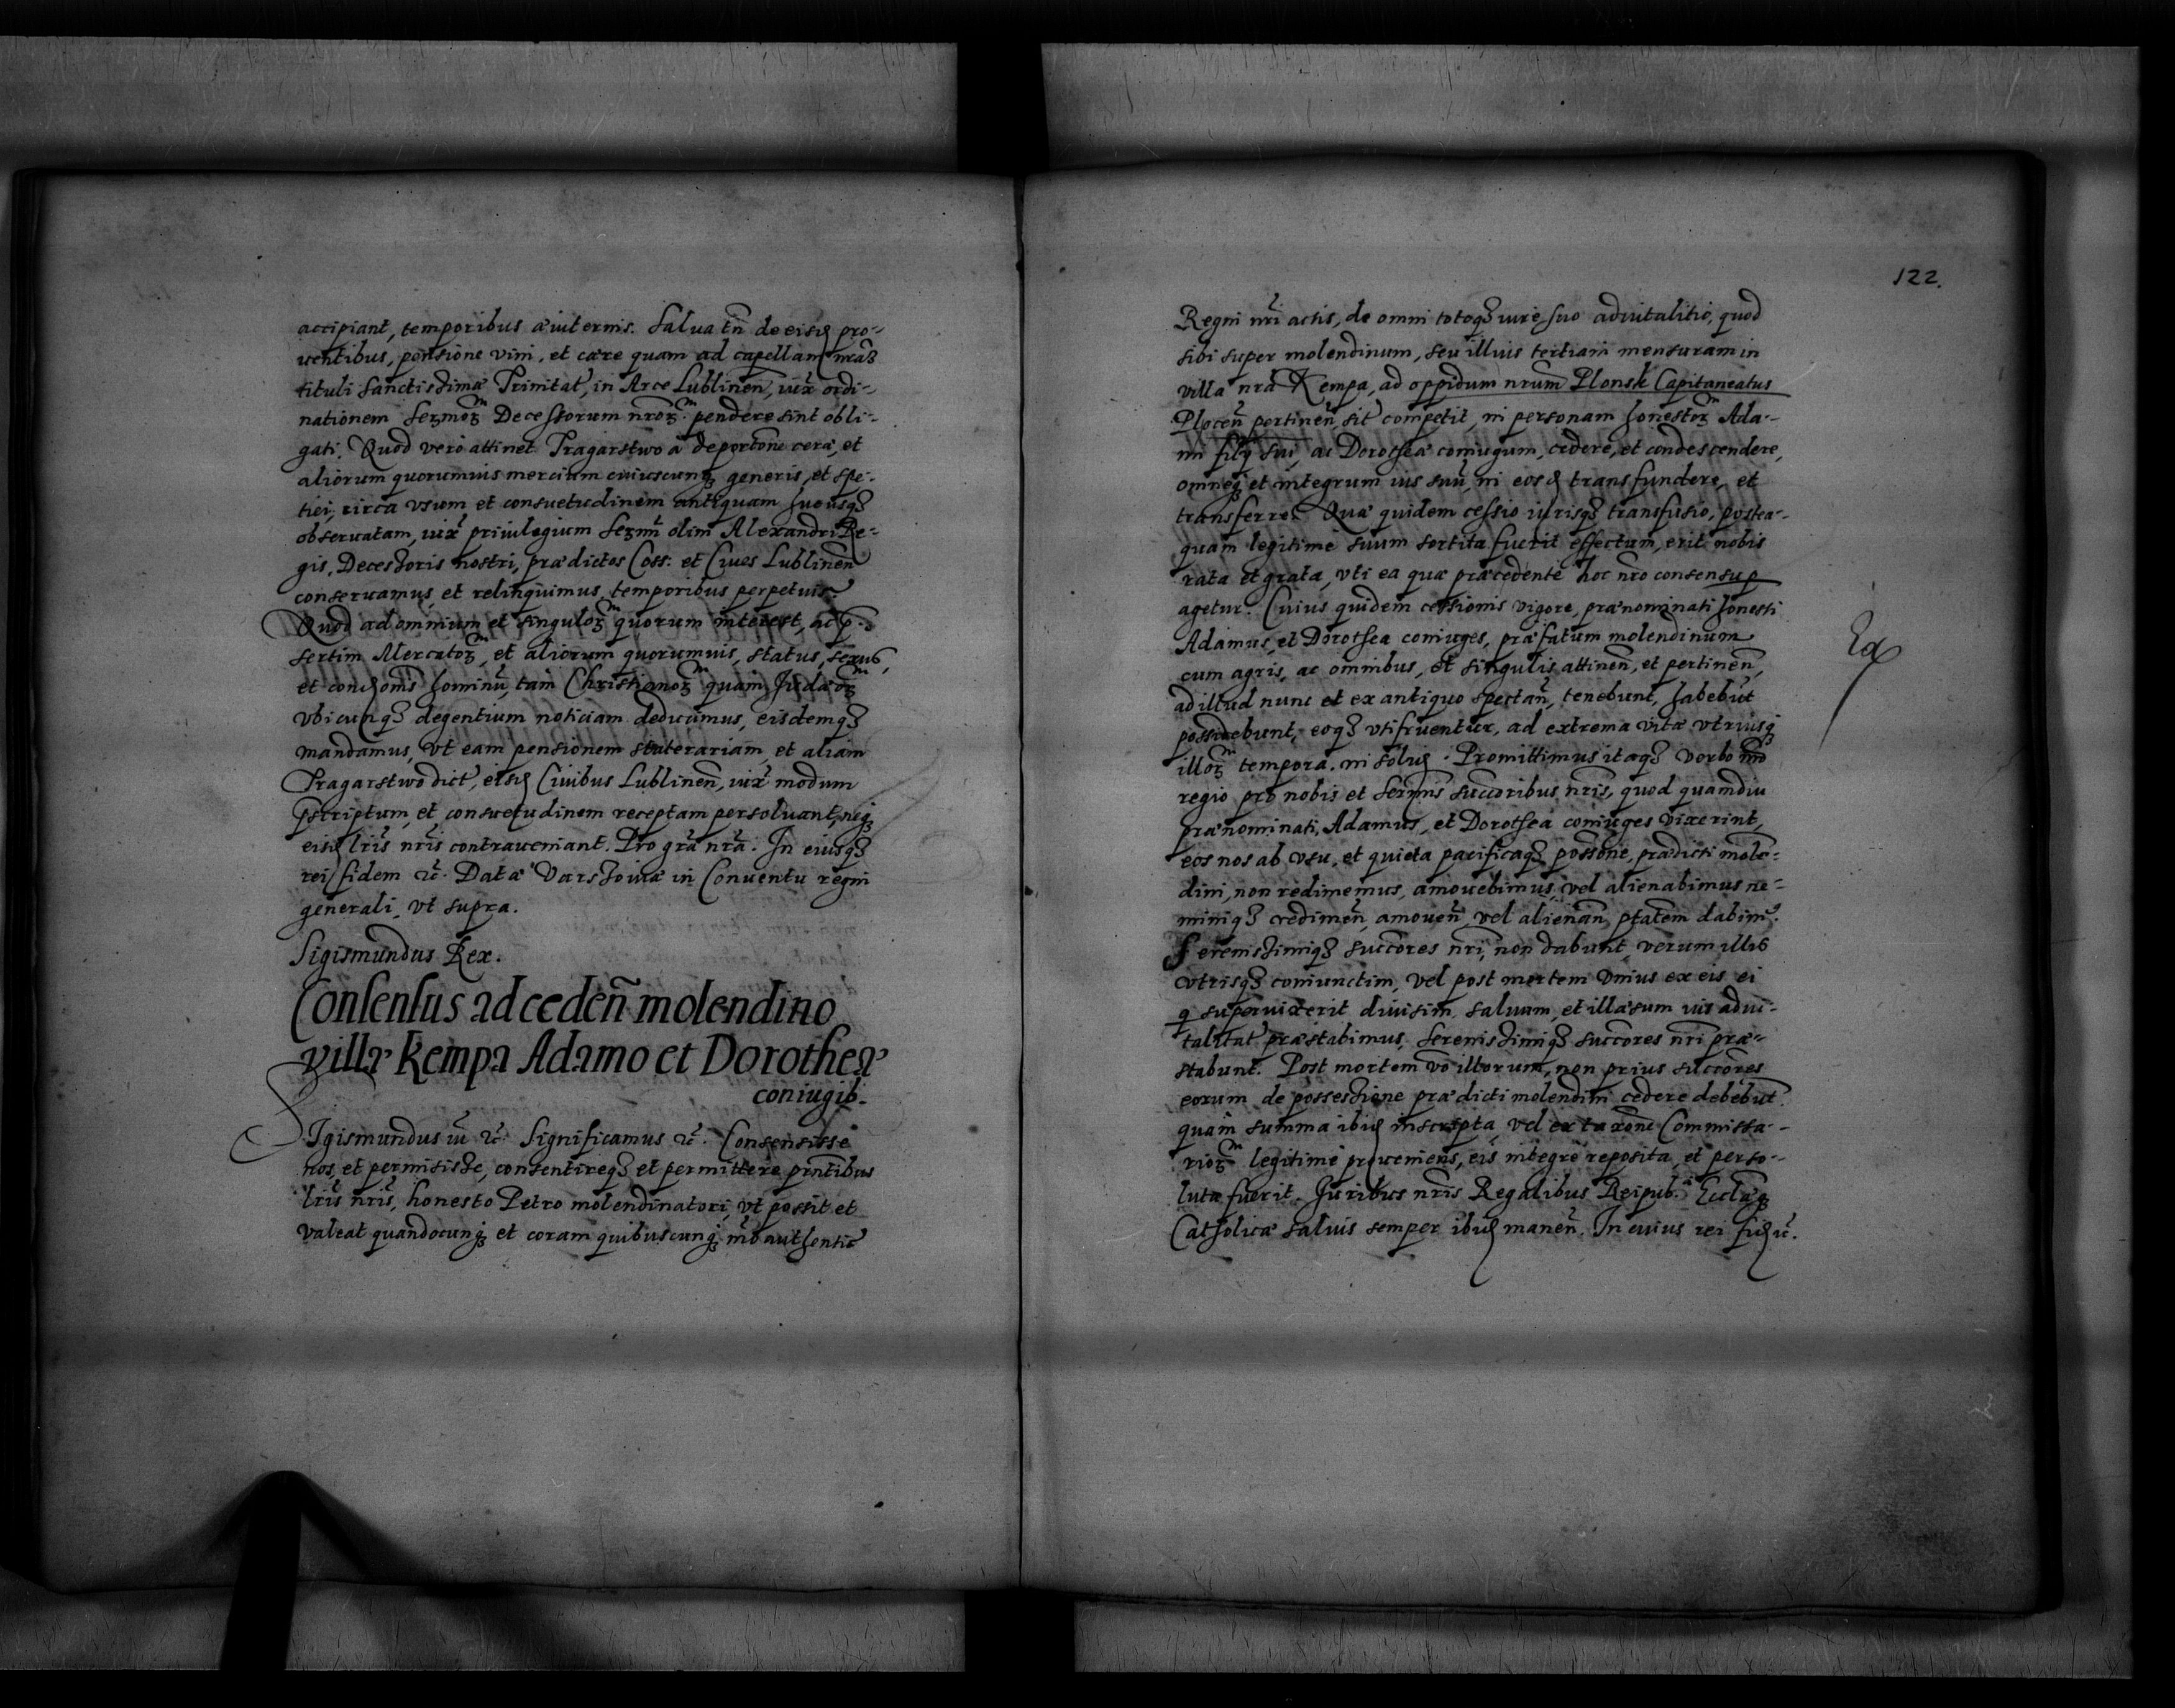 accipiant, temporibus æviternis. Salva tn̄ de eisd. pro-
ventibus, pensione vini, et cæræ quam ad capellam nrāꝫ
tituli Sanctissimæ Trinitat, in Arce Lublinen̄, iux̄ ordi-
nationem Serᵐoꝝ Decessorum nr̄oꝝ pendere sint obli-
gati. Quod vero attinet Tragarstwo a deportōne ceræ, et
aliorum quorumvis mercium cuiuscunqꝫ generis, et spe-
tiei, circa usum et consuetudinem antiquam hucusqꝫ
observatam, iux̄ privilegium Serᵐi olim Alexandri Re-
gis, Decessoris nostri, prædictos Coss: et Cives Lublinen̄
conservamus, et relinquimus, temporibus perpetuis.
Quod ad omnium et singuloꝝ quorum interest, ac p̄-
sertim Mercatoꝝ, et aliorum quorumvis, status, sexus,
et condionis hominū, tam Christianoꝝ quam Judæoꝝ
ubicunqꝫ degentium noticiam deducimus, eisdemqꝫ
mandamus, ut eam pensionem staterariam, et aliam
Tragarstwo dict, eisd. Civibus Lublinen̄, iux̄ modum
p̄scriptum, et consuetudinem receptam persolvant, neqꝫ
eisd. lr̄is nr̄is contraveniant. Pro grā nrā. In eiusqꝫ
rei fidem ꝛc̄. Datæ Varsoviæ in Conventu regni
generali, ut supra.
Sigismundus Rex.
Consensus ad ceden̄ molendino
villæ Kempa Adamo et Dorotheæ
coniugib.
Sigismundus iii ꝛc̄. Significamus ꝛc̄. Consensisse
nos, et permisisse, consentireqꝫ et permittere pn̄tibus
lr̄is nr̄is, honesto Petro molendinatori, ut possit et
valeat quandocunqꝫ et coram quibuscunqꝫ authentic
122.
Regni nr̄i actis, de omni totoqꝫ iure suo advitalitio, quod
sibi super molendinum, seu illius tertiam mensuram in
villa nrā Kempa, ad oppidum nr̄um Plonsk Capitaneatus
Plocen̄ pertinen̄ sit competit, in personam honestoꝝ Ada-
mi filij sui, ac Dorotheæ coniugum, cedere, et condescendere,
omneqꝫ et integrum ius suū, in eosd. transfundere, et
transferre. Quæ quidem cessio iurisqꝫ transfusio, postea-
quam legitime suum sortita fuerit effectum, erit nobis
rata et grata, uti ea quæ præcedente hoc nr̄o consensu p
agetur. Cuius quidem cessionis vigore, prænominati honesti
Adamus, et Dorothea coniuges, præfatum molendinum
cum agris, ac omnibus, et singulis attinen̄, et pertinen̄,
ad illud nunc et ex antiquo spectan̄, tenebunt, habebūt
possidebunt, eoqꝫ utifruentur, ad extrema vitæ utriusqꝫ
illoꝝ tempora, in solid. Promittimus itaqꝫ verbo nr̄o
regio pro nobis et Serᵐis succoribus nr̄is, quod quamdiu
prænominati, Adamus, et Dorothea coniuges vixerint,
eos nos ab usu, et quieta pacificaqꝫ possōne, prædicti molen-
dini, non redimemus, amovebimus, vel alienabimus ne-
miniqꝫ redimen̄, amoven̄, vel alienan̄, ptātem dabim⁹.
Serenissimiqꝫ succōres nr̄i, non dabunt, verum illis
utrisqꝫ coniunctim, vel post mortem unius ex eis ei
q supervixerit divisim, salvum, et illæsum ius advi-
talitat præstabimus, Serenissimiqꝫ succōres nr̄i præ-
stabunt. Post mortem vō illorum, non prius succōres
eorum de possessione prædicti molendini cedere debebūt
quam summa ibid. inscripta, vel ex taxōne Commissa-
rioꝝ legitime proveniens, eis integre reposita, et perso-
luta fuerit. Juribus nr̄is Regalibus Reipub. Ecclæqꝫ
Catholicæ salvis semper ibid. manen̄. In cuius rei fid. ꝛc̄.